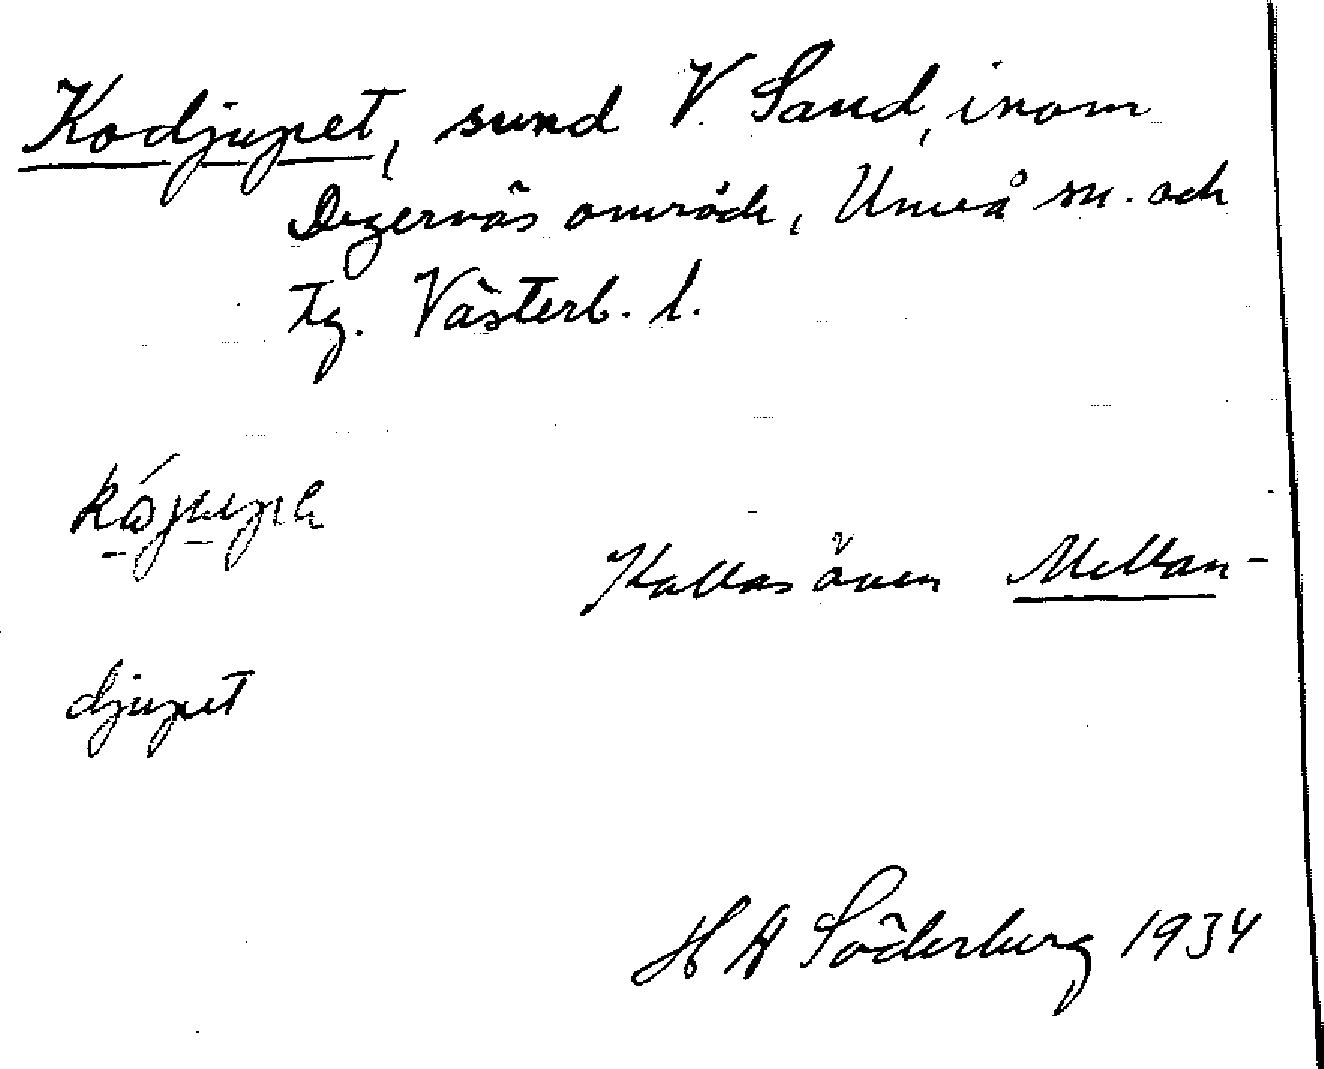 Kodjupet, sund V. Sand, inom
Degernäs område, Umeå sn. och
tg. Västerb. l.
Kallas även Mellan-
djupet
H A Söderberg 1934